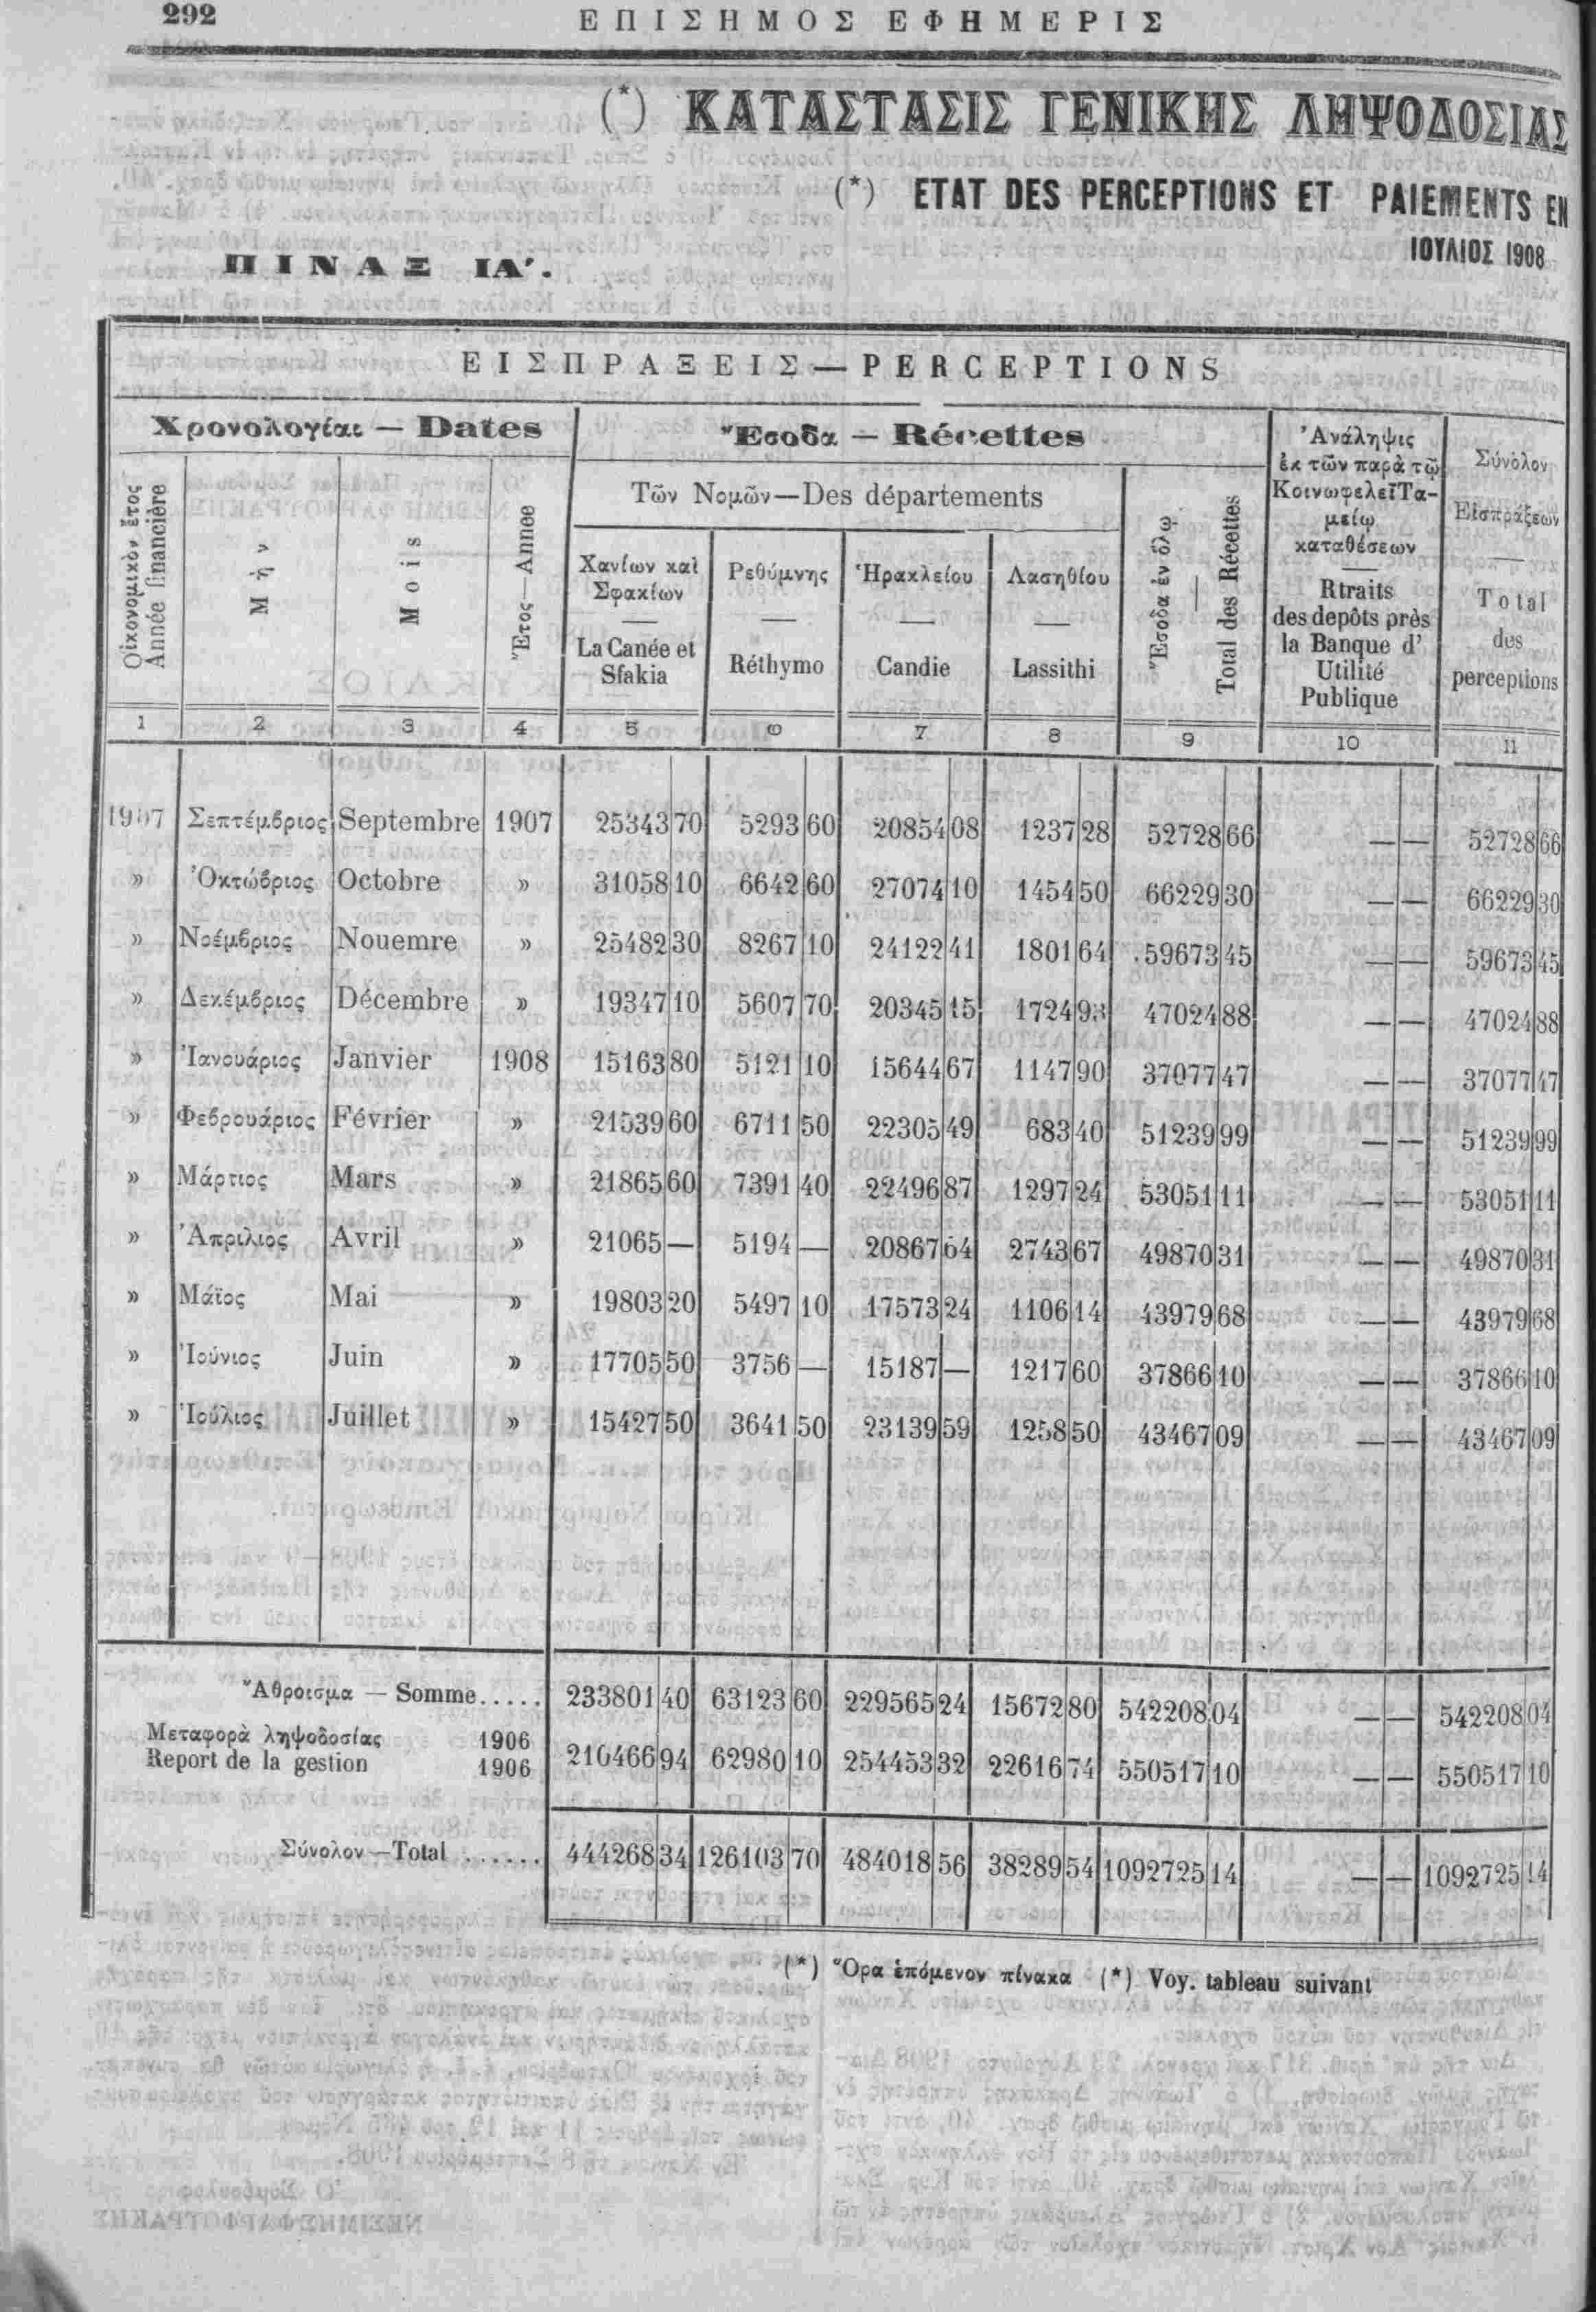 292
ΕΠΙΣΗΜΟΣ ΕΦΗΜΕΡΙΣ
(*) ΚΑΤΑΣΤΑΣΙΣ ΓΕΝΙΚΗΣ ΛΗΨΟΔΟΣΙΑΣ
(*) ETAT DES PERCEPTIONS ET PAIEMENTS EN
ΙΟΥΛΙΟΣ 1908
ΠΙΝΑΞ ΙΑ'.
ΕΙΣΠΡΑΞΕΙΣ — PERCEPTIONS
Χρονολογίαι — Dates
Ἔσοδα — Récettes
Ἀνάληψις ἐκ τῶν παρὰ τῷ Κοινωφελεῖ Ταμείῳ καταθέσεων — Rtraits des depôts près la Banque d' Utilité Publique
Σύνολον Εἰσπράξεων — Total des perceptions
Οἰκονομικὸν ἔτος Année financière
Μὴν
Mois
Ἔτος—Annee
Τῶν Νομῶν—Des départements
Χανίων καὶ Σφακίων — La Canée et Sfakia
Ρεθύμνης — Réthymo
Ἡρακλείου — Candie
Λασηθίου — Lassithi
Ἔσοδα ἐν ὅλῳ. — Total des Récettes
1 2 3 4 5 6 7 8 9 10 11
1907 Σεπτέμβριος Septembre 1907 25343 70 5293 60 20854 08 1237 28 52728 66 — — 52728 66
» Ὀκτώβριος Octobre » 31058 10 6642 60 27074 10 1454 50 66229 30 — — 66229 30
» Νοέμβριος Nouemre » 25482 30 8267 10 24122 41 1801 64 59673 45 — — 59673 45
» Δεκέμβριος Décembre » 19347 10 5607 70 20345 15 1724 93 47024 88 — — 47024 88
» Ἰανουάριος Janvier 1908 15163 80 5121 10 15644 67 1147 90 37077 47 — — 37077 47
» Φεβρουάριος Février » 21539 60 6711 50 22305 49 683 40 51239 99 — — 51239 99
» Μάρτιος Mars » 21865 60 7391 40 22496 87 1297 24 53051 11 — — 53051 11
» Ἀπρίλιος Avril » 21065 — 5194 — 20867 64 2743 67 49870 31 — — 49870 31
» Μάϊος Mai » 19803 20 5497 10 17573 24 1106 14 43979 68 — — 43979 68
» Ἰούνιος Juin » 17705 50 3756 — 15187 — 1217 60 37866 10 — — 37866 10
» Ἰούλιος Juillet » 15427 50 3641 50 23139 59 1258 50 43467 09 — — 43467 09
Ἄθροισμα — Somme..... 233801 40 63123 60 229565 24 15672 80 542208 04 — — 542208 04
Μεταφορὰ ληψοδοσίας 1906
Report de la gestion 1906 210466 94 62980 10 254453 32 22616 74 550517 10 — — 550517 10
Σύνολον—Total ...... 444268 34 126103 70 484018 56 38289 54 1092725 14 — — 1092725 14
(*) Ὅρα ἑπόμενον πίνακα (*) Voy. tableau suivant